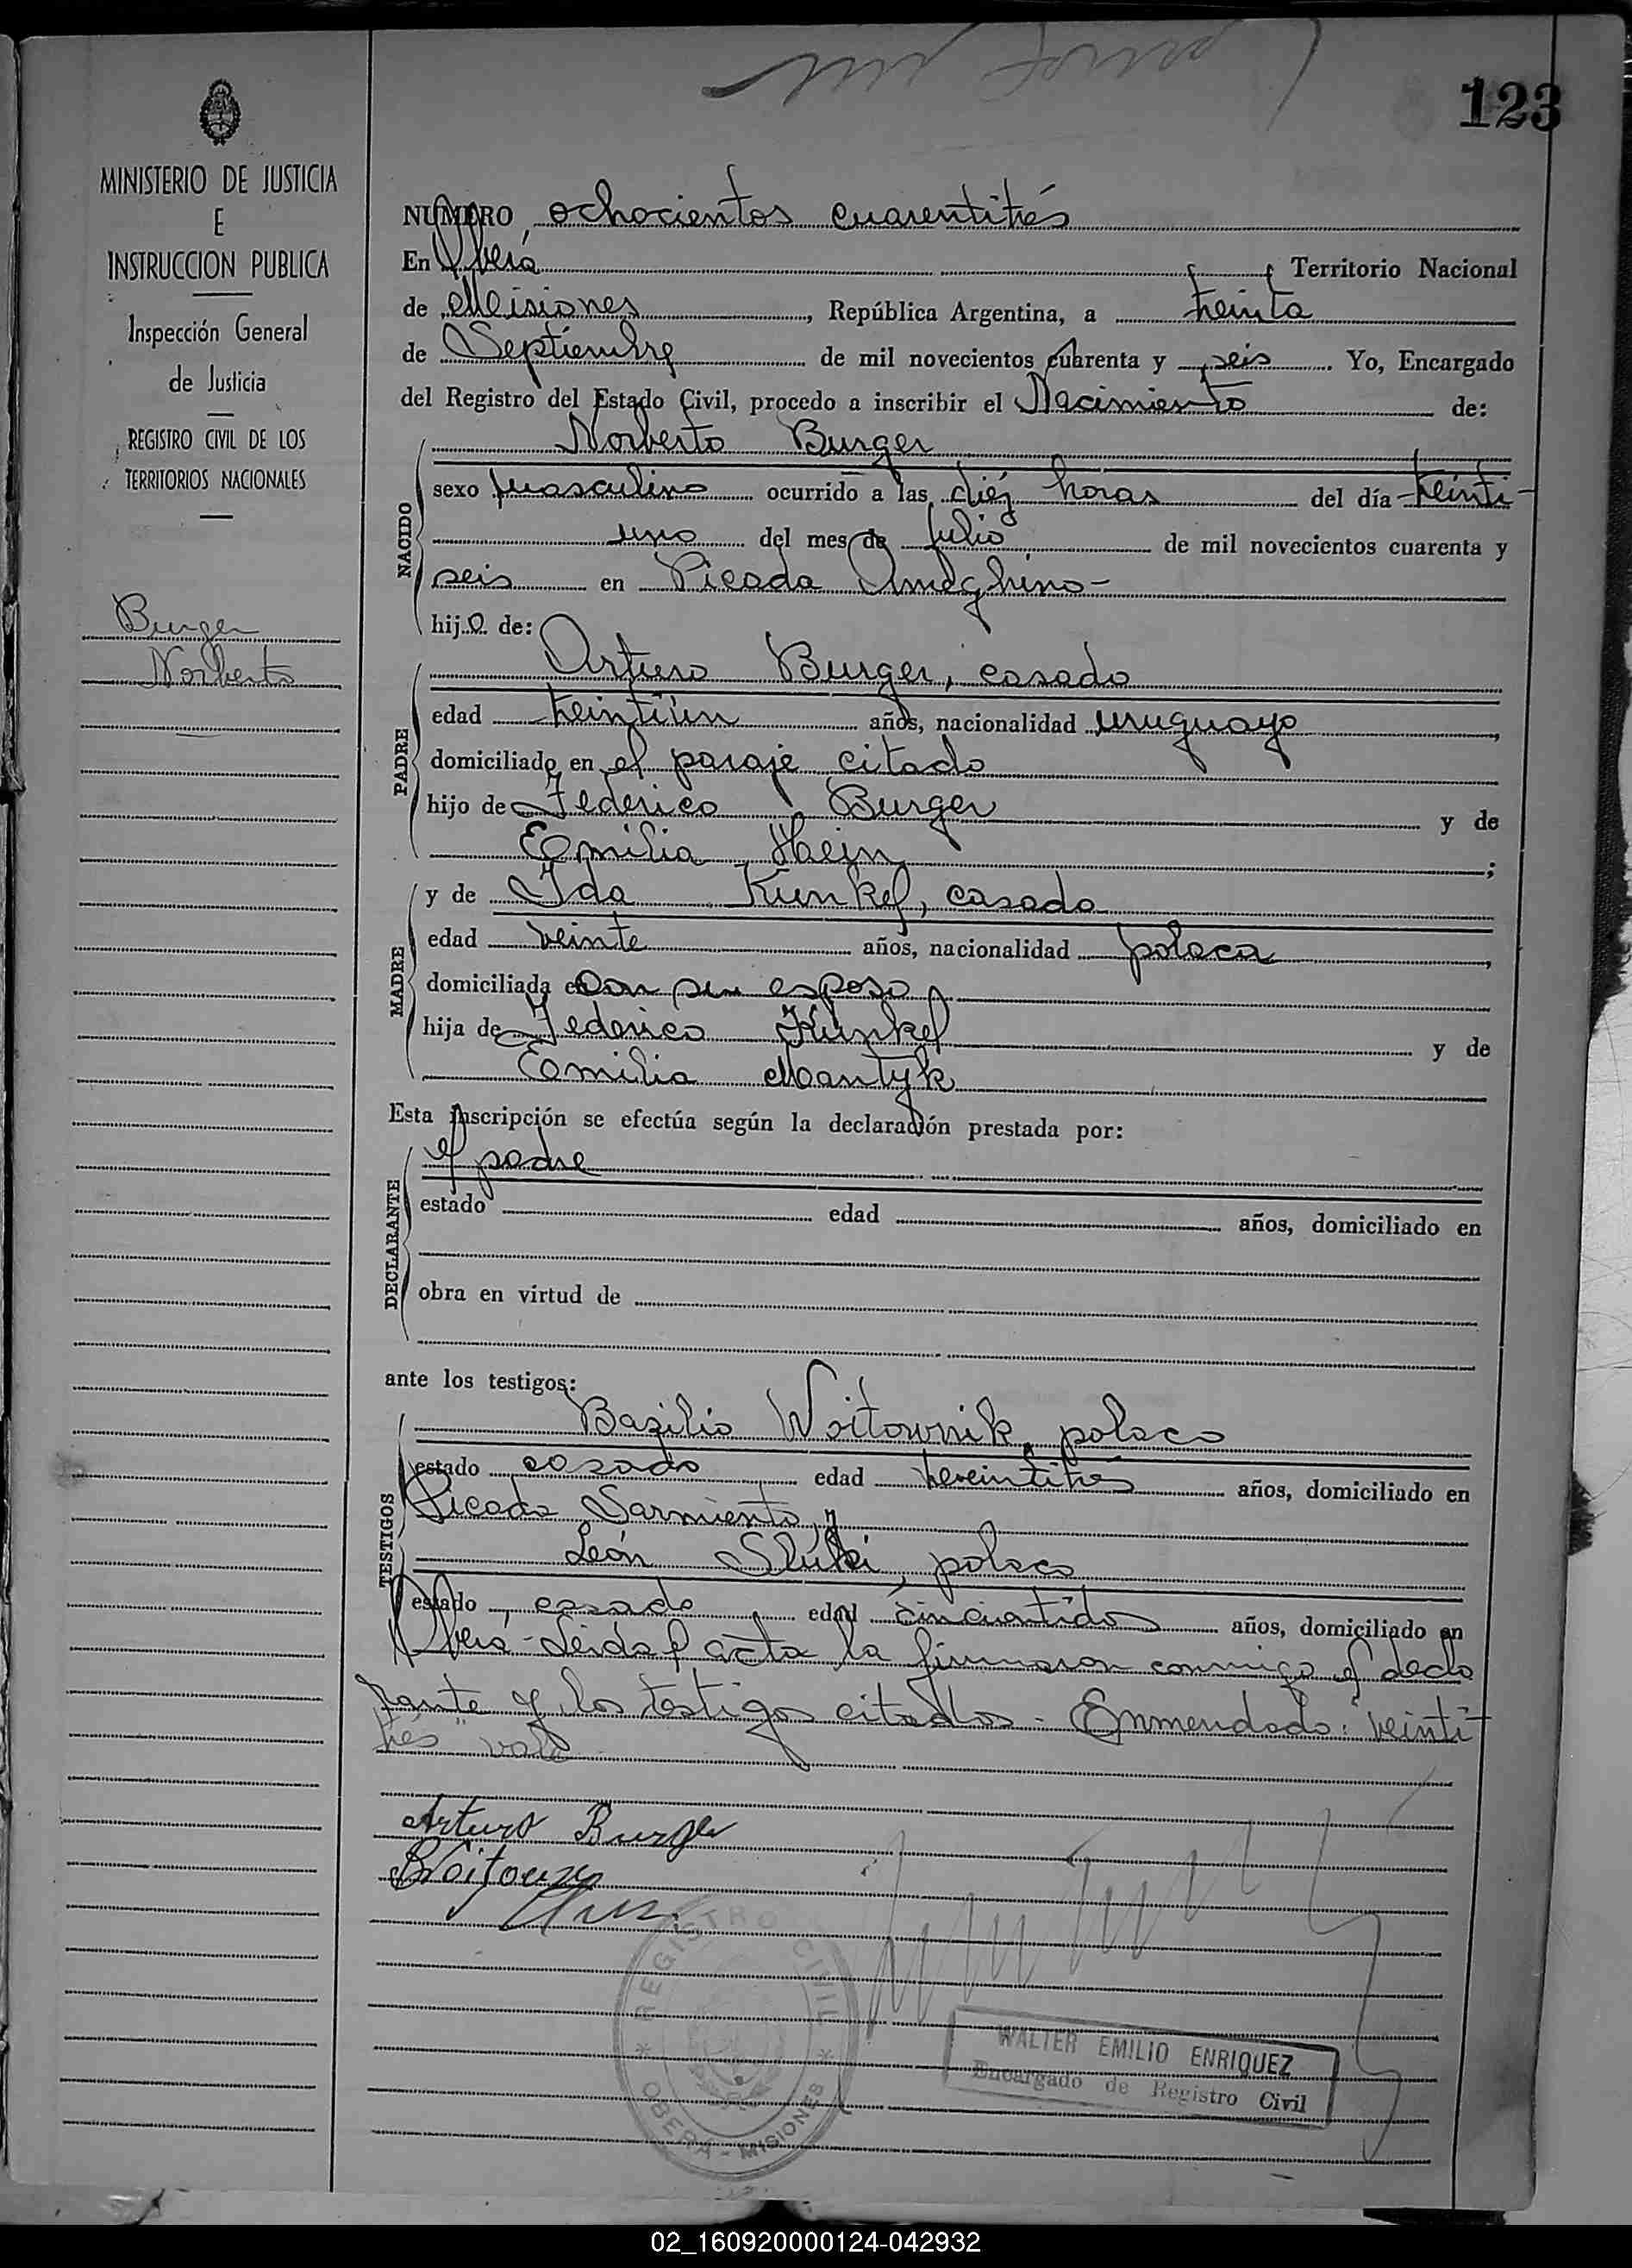 123
MINISTERIO DE JUSTICIA
E
INSTRUCCION PUBLICA
Inspección General
de Justicia
REGISTRO CIVIL DE LOS
TERRITORIOS NACIONALES
Burger
Norberto
NUMERO ochocientos cuarentitrés
En Oberá Territorio Nacional
de Misiones, República Argentina, a treinta
de Septiembre de mil novecientos cuarenta y seis. Yo, Encargado
del Registro del Estado Civil, procedo a inscribir el Nacimiento de:
Norberto Burger
NACIDO
sexo masculino ocurrido a las diéz horas del día treinti-
uno del mes de julio de mil novecientos cuarenta y
seis en Picada Ameghino-
hijo de:
PADRE
Arturo Burger, casado
edad años, nacionalidad uruguayo,
domiciliado en el paraje citado
hijo de Federico Burger y de
Emilia Hein;
MADRE
y de Ida Kunkel, casada
edad veinte años, nacionalidad polaca,
domiciliada con su esposo
hija de Federico Kunkel y de
Emilia Mantyk
Esta inscripción se efectúa según la declaración prestada por:
DECLARANTE
el padre
estado edad años, domiciliado en
obra en virtud de
ante los testigos:
TESTIGOS
Bazilio Woitownik, polaco
estado casado edad años, domiciliado en
Picada Sarmiento, y
León polaco
estado, casado edad cincuentidos años, domiciliado en
Oberá-Leida el acta la firmaron conmigo el decla
rante y los testigos citados. Enmendado: "veinti-
trés" vale
Arturo Burger
REGISTRO CIVIL
OBERA - MISIONES
WALTER EMILIO ENRIQUEZ
Encargado de Registro Civil
02_160920000124-042932